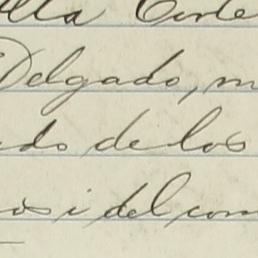 lla Corte
Delgado, m
ado de los
os i del com